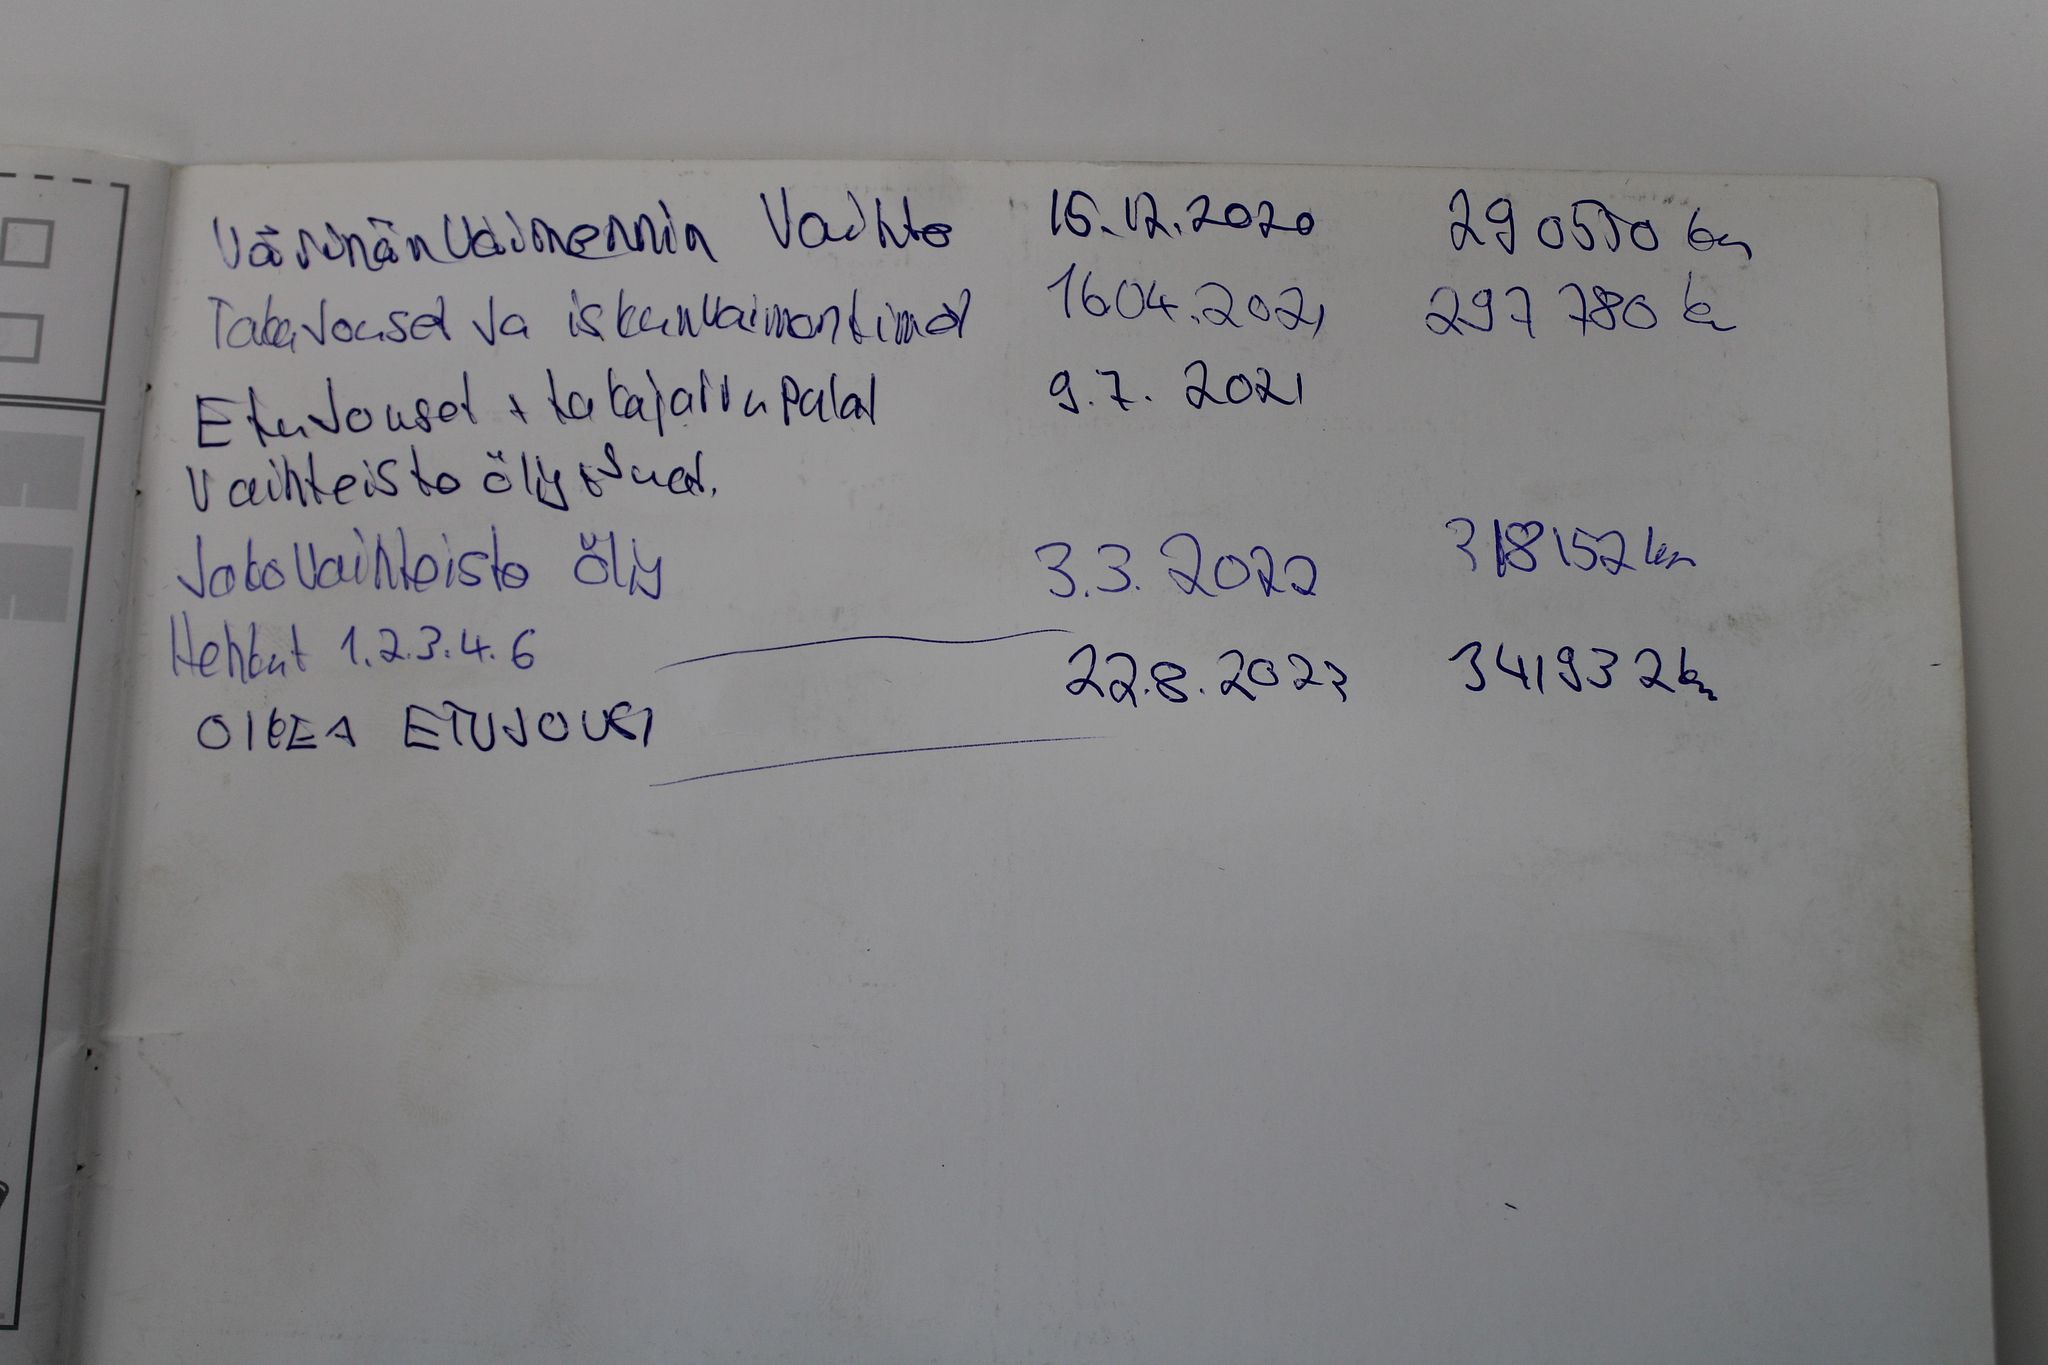 Värinänvaimennin Vaihto 15.12.2020 290550 km
Takajouset ja iskunvaimentimet 16.04.2021 297 780 km
Etujouset + takajarrupalat 9.7. 2021
Vaihteisto öljy + suod.
Jakovaihteisto öljy 3.3. 2022 318152 km
Hehkut 1.2.3.4.6
22.8.2023 341932 km
OIKEA ETUJOUSI